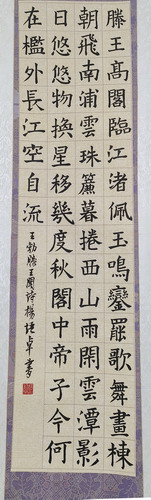 滕王髙閣臨江渚佩玉鳴鑾罷歌舞畫棟
朝飛南浦雲珠簾暮捲西山雨閑雲潭影
日悠悠物換星移幾度秋閣中帝子今何
在檻外長江空自流
王勃滕王閣詩 楊